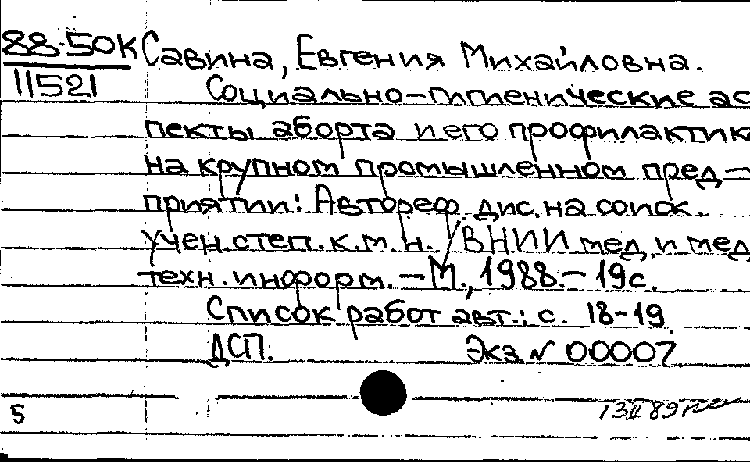 88-50К Савина, Евгения Михайловна.
11521 Социально-гигиенические ас
пекты аборта и его профилактик
на крупном промышленном пред-
приятии: Автореф. дис. на соиск.
учен. степ. к.м.н. / ВНИИ мед. и мед.
техн. информ. — М., 1988. — 19 с.
Список работ авт.: с. 18-19
ДСП. Экз № 00007
5